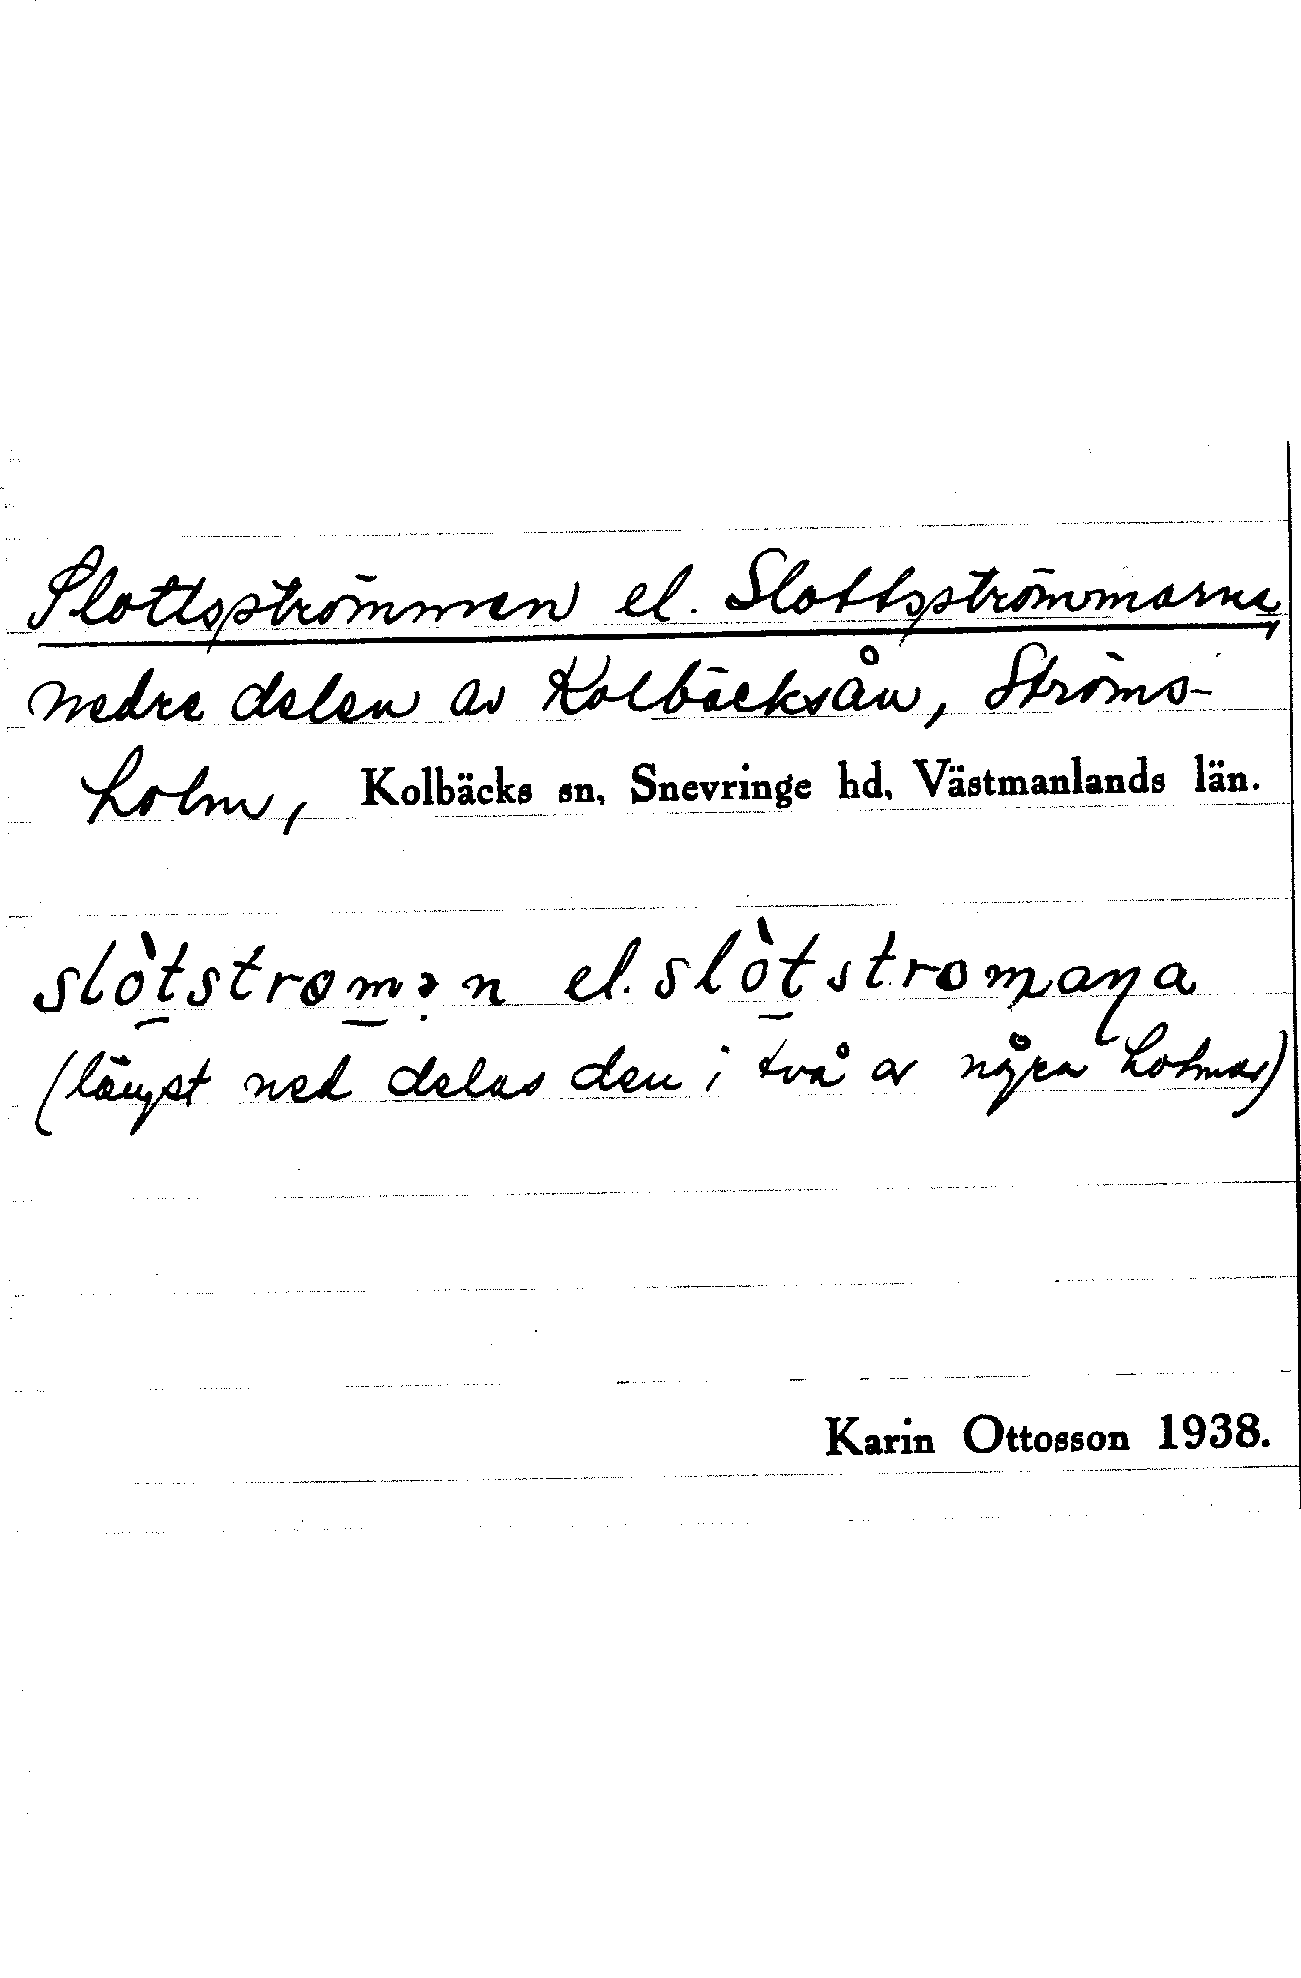 Slottsströmmen el. Slottsströmmarna,
nedre delen av Kolbäcksån, Ströms-
holm, Kolbäcks sn, Snevringe hd, Västmanlands län.
slòtstrømən el. slòtstromaɳa
(längst ned delas den i två av några holmar)
Karin Ottosson 1938.